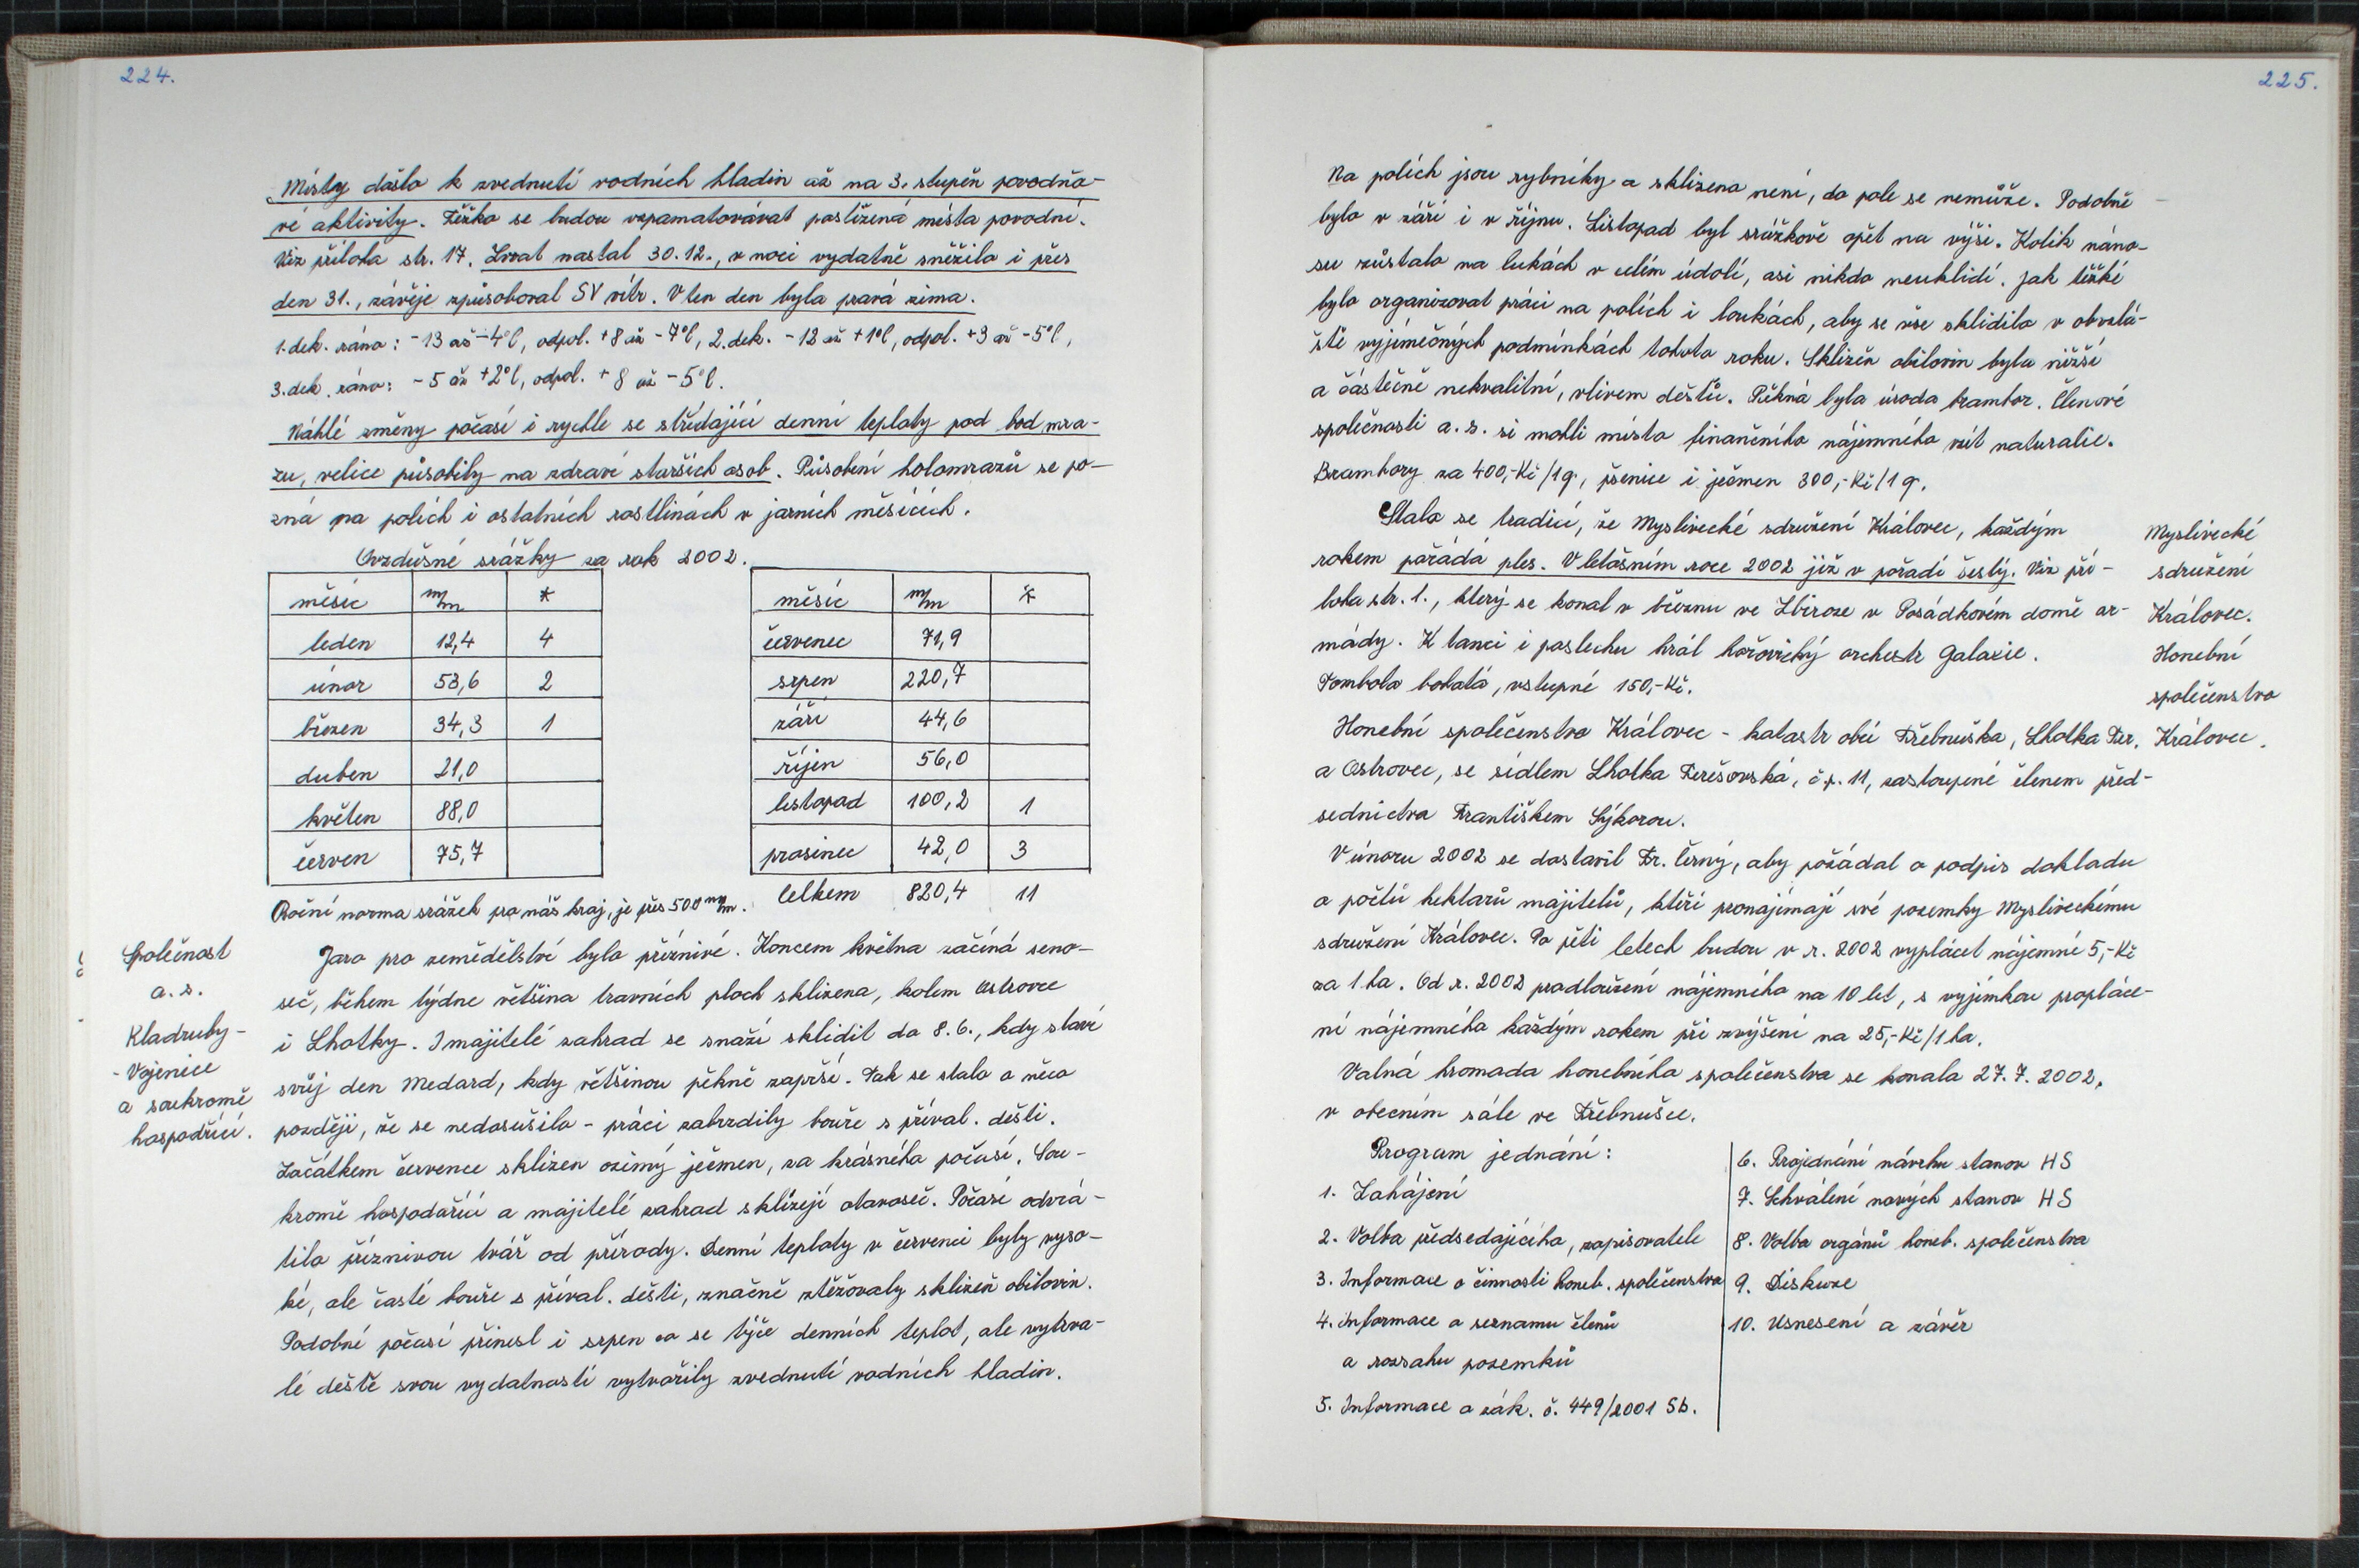 224.
Místy došlo k zvednutí vodních hladin až na 3. stupěň povodňo-
vé aktivity. Těžko se budou vzpamatovávat postižená města povodní.
Viz příloha str. 17. Zvrat nastal 30.12., v noci vydatně sněžilo i přes
den 31., závěje způsoboval SV vítr. V ten den byla pravá zima.
1. dek. ráno: -13 až -4°C, odpol. +8 až -7°C, 2. dek. -12 až +1°C, odpol. +3 až -5°C,
3. dek. ráno: -5 až +2°C, odpol. +8 až -5°C.
Náhlé změny počasí i rychle se střídající denní teploty pod bod mra-
zu, velice působily na zdraví starších osob. Působení holomrazů se po-
zná na polích i ostatních rostlinách v jarních měsících.
Ovzdušné srážky za rok 2002.
měsíc m/m *
leden 12,4 4
únor 53,6 2
březen 34,3 1
duben 21,0
květen 88,0
červen 75,7
měsíc m/m *
červenec 71,9
srpen 220,7
září 44,6
říjen 56,0
listopad 100,2 1
prosinec 42,0 3
Celkem 820,4 11
Roční norma srážek pro náš kraj, je přes 500 m/m.
Společnost
a.s.
Kladruby-
-Vojenice
a soukromě
hospodřící.
Jaro pro zemědělství bylo příznivé. Koncem května začíná seno-
seč, během týdne většina travních ploch sklizena, kolem Ostrovce
i Lhotky. I majitelé zahrad se snaží sklidit do 8.6., kdy slaví
svůj den Medard, kdy většinou pěkně zaprší. Tak se stalo o něco
později, že se nedosušilo - práci zabrzdily bouře s příval. dešti.
Začátkem července sklizen ozimý ječmen, za krásného počasí. Sou-
kromě hospodařící a majitelé zahrad sklízejí otavoseč. Počasí odvrá-
tilo příznivou tvář od přírody. Denní teploty v červenci byly vyso-
ké, ale časté bouře s příval. dešti, značně ztěžovaly sklizeň obilovin.
Podobné počasí přinesl i srpen co se týče denních teplot, ale vytrva-
lé deště svou vydatností vytvořily zvednutí vodních hladin.
225.
Na polích jsou rybníky a sklizeno není, do pole se nemůže. Podobně
bylo v září i v říjnu. Listopad byl srážkově opět na výši. Kolik náno-
su zůstalo na lukách v celém údolí, asi nikdo neuklidí. Jak těžké
bylo organizovat práci na polích i loukách, aby se vše sklidilo v obzvlá-
ště vyjímečných podmínkách tohoto roku. Sklizěn obilovin byla nižší
a částečně nekvalitní, vlivem dešťů. Pěkná byla úroda brambor. Členové
společnosti a.s. si mohli místo finančního nájemného vzít naturalie.
Brambory za 400,-Kč/1q, pšenice i ječmen 300,-Kč/1q.
Stalo se tradicí, že Myslivecké sdružení Královec, každým
rokem pořádá ples. V letošním roce 2002 již v pořadí šestý. Viz pří-
loha str. 1., který se konal v březnu ve Zbiroze v Posádkovém domě ar-
mády. K tanci i poslechu hrál hořovický orchestr Galaxie.
Tombola bohatá, vstupné 150,-Kč.
Myslivecké
sdružení
Královec.
Honební
společenstvo
Královec.
Honební společenstvo Královec - katastr obcí Třebnuška, Lhotka Ter.
a Ostrovec, se sídlem Lhotka Terešovská, č.p. 11, zastoupené členem před-
sednictva Františkem Sýkorou.
V únoru 2002 se dostavil Fr. Černý, aby požádal o podpis dokladu
o počtu hektarů majitelů, kteří pronajímají své pozemky Mysliveckému
sdružení Královec. Po pěti letech budou v r. 2002 vyplácet nájemné 5,-Kč
za 1 ha. Od r. 2002 prodloužení nájemného na 10 let, s vyjímkou propláce-
ní nájemného každým rokem při zvýšení na 25,-Kč/1 ha.
Valná hromada honebního společenstva se konala 27.7.2002,
v obecním sále ve Třebnušce.
Program jednání:
1. Zahájení
2. Volba předsedajícího, zapisovatele
3. Informace o činnosti honeb. společenstva
4. Informace o seznamu členů
a rozsahu pozemků
5. Informace o zák. č. 449/2001 Sb.
6. Projednání návrhu stanov HS
7. Schválení nových stanov HS
8. Volba orgánů honeb. společenstva
9. Diskuze
10. Usnesení a závěr